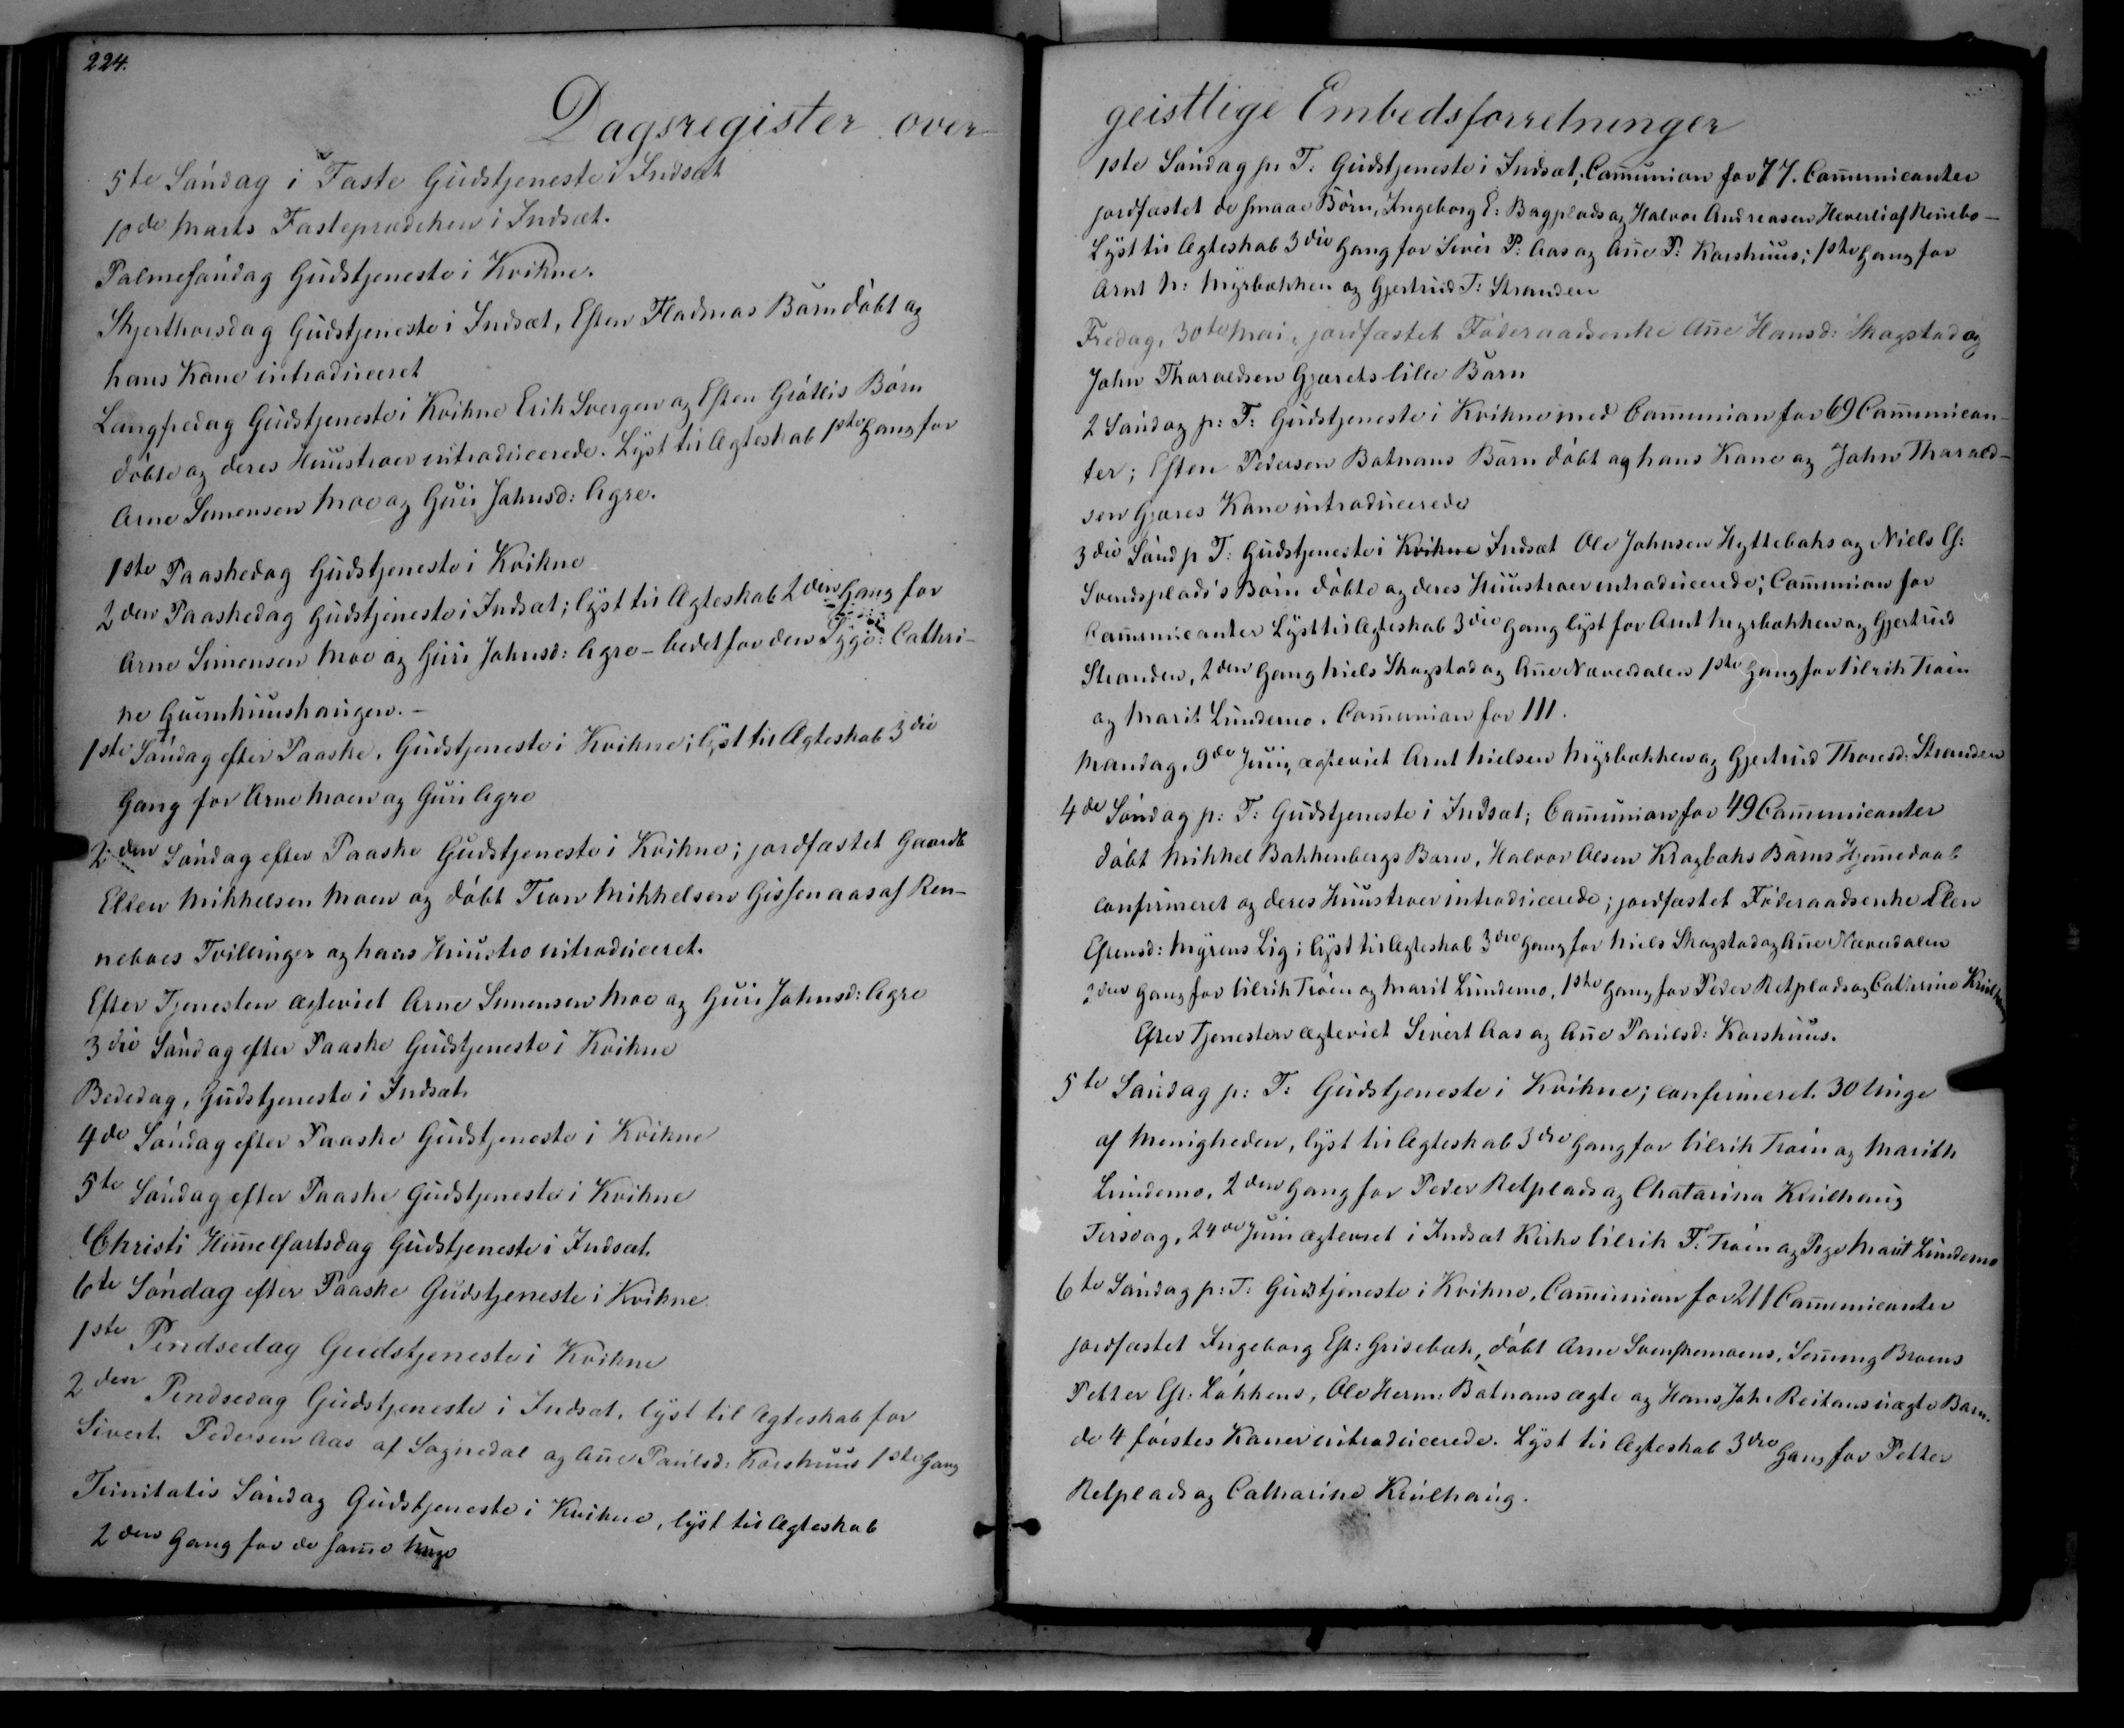 224.
Dagsregister over
5te Søndag i Faste Gudstjeneste i Indset
10de Marts Fasteprædiken i Indset.
Palmesøndag Gudstjeneste i Kvikne.
Skjerthorsdag Gudstjeneste i Indset, Esten Fladmos Barn døbt og
hans Kone introduceret
Langfredag Gudstjeneste i Kvikne Erik Svergen og Esten Grøttis Børn
døbte og deres Huustroer introducerede. Lyst til Ægteskab 1ste Gang for
Arne Simensen Moe og Guri Johnsd: Agre.
1ste Paaskedag Gudstjeneste i Kvikne
2den Paaskedag Gudstjeneste i Indset; lyst til Ægteskab 2den Gang for
Arne Simensen Moe og Guri Johnsd: Agre – bedet for den Syge: Cathri-
ne
1ste Søndag efter Paaske, Gudstjeneste i Kvikne; lyst til Ægteskab 3die
Gang for Arne Moen og Guri Agre
2den Søndag efter Paaske Gudstjeneste i Kvikne; jordfæstet Gaardb
Ellen Mikkelsen Moen og døbt Tron Mikkelsen Gissenaas af Ren-
neboes Tvillinger og hans Huustro introduceret.
Efter Tjenesten ægteviet Arne Simensen Moe og Guri Johnsd: Agre
3die Søndag efter Paaske Gudstjeneste i Kvikne
Bededag, Gudstjeneste i Indset.
4de Søndag efter Paaske Gudstjeneste i Kvikne
5te Søndag efter Paaske Gudstjeneste i Kvikne
Christi Him̅elfartsdag Gudstjeneste i Indset.
6te Søndag efter Paaske Gudstjeneste i Kvikne.
1ste Pindsedag Gudstjeneste i Kvikne
2den Pindsedag Gudstjeneste i Indset, lyst til Ægteskab for
Sivert Pedersen Aas af Sognedal og An̅e Paulsd: Korshuus 1ste Gang
Trinitatis Søndag Gudstjeneste i Kvikne, lyst til Ægteskab
2den Gang for de sam̅e
geistlige Embedsforretninger
1ste Søndag p: T: Gudstjeneste i Indset; Com̅union for 77. Com̅unicanter
jordfæstet de smaae Børn, Ingeborg E: Bagplads og Halvor Andreasen Heverli af Ren̅ebo –
Lyst til Ægteskab 3die Gang for Siver P: Aas og An̅e P: Korshuus; 1ste Gang for
Arnt N: Myrbækken og Gjertrud T: Stranden
Fredag, 30te Mai, jordfæstet Føderaadsenke An̅e Hansd: Skogstad og
John Tharaldsen Gjærets lille Barn
2 Søndag p: T: Gudstjeneste i Kvikne med Com̅union for 69 Com̅unican-
ter; Esten Pedersen Botnans Barn døbt og hans Kone og John Tharald-
sen Gjæres Kone introducerede
3die Sønd p T: Gudstjeneste i Kvikne Indset Ole Johnsen Hyttebaks og Niels E:
Svendsplads's Børn døbte og deres Huustroer introducerede; Com̅union for
Com̅unicanter Lyst til Ægteskab 3die Gang lyst for Arnt Myrbækken og Gjertrud
Stranden, 2den Gang Niels Skogstad og An̅e Næverdalen 1ste Gang for Ulrik Trøen
og Marit Lindemo. Com̅union for 111.
Mandag, 9de Juni, ægteviet Arnt Nielsen Myrbækken og Gjertrud Thoresd: Stranden
4de Søndag p: T: Gudstjeneste i Indset; Com̅union for 49 Com̅unicanter
døbt Mikkel Bakkenbergs Barn, Halvor Olsen Kragbaks Barns Hjem̅edaab
confirmeret og deres Huustroer introducerede; jordfæstet Føderaadsenke Elen
Estensd: Myrens Lig; lyst til Ægteskab 3die Gang for Niels Skogstad og An̅e Næverdalen
2den Gang for Ulrik Trøen og Marit Lindemo, 1ste Gang for Peder Retplads og Cathrine
Efter Tjenesten ægteviet Sivert Aas og An̅e Paulsd: Korshuus.
5te Søndag p: T: Gudstjeneste i Kvikne; confirmeret 30 Unge
af Menigheden, lyst til Ægteskab 3die Gang for Ulrik Trøen og Marith
Lindemo, 2den Gang for Peder Retplads og Chatarina Kuilhaug
Tirsdag, 24de Juni ægteviet i Indset Kirke Ulrik T: Trøen og Pige Marit Lindemo
6te Søndag p: T: Gudstjeneste i Kvikne, Com̅union for 211 Com̅unicanter
jordfæstet Ingeborg Est: Grisebæk, døbt Arne Svenskemoens, Sem̅ing Broens
Petter Est: Løkkens, Ole Herm: Botnans ægte og Hans Joh: Reitans uægte Barn.
de 4 førstes Koner introducerede. Lyst til Ægteskab 3die Gang for Petter
Retplads og Catharine Kuilhaug.